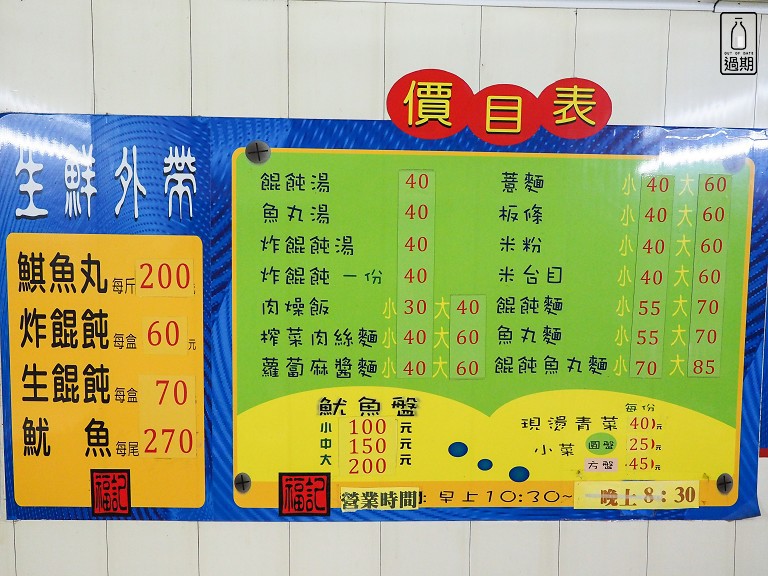 OUT OF DATE
過期
價目表
生鮮外帶
鯕魚丸 每斤 200元
炸餛飩 每盒 60元
生餛飩 每盒 70
魷魚 每尾 270
福記
餛飩湯 40
魚丸湯 40
炸餛飩湯 40
炸餛飩一份 40
肉燥飯 小 30 大 40
榨菜肉絲麵 小 40 大 60
蘿蔔麻醬麵 小 40 大 60
薏麵 小 40 大 60
板條 小 40 大 60
米粉 小 40 大 60
米台目 小 40 大 60
餛飩麵 小 55 大 70
魚丸麵 小 55 大 70
餛飩魚丸麵 小 70 大 85
魷魚盤
小 100 元
中 150 元
大 200 元
每份
現燙青菜 40元
小菜 圓盤 25元
方盤 45元
福記 營業時間: 早上10:30~晚上 8:30